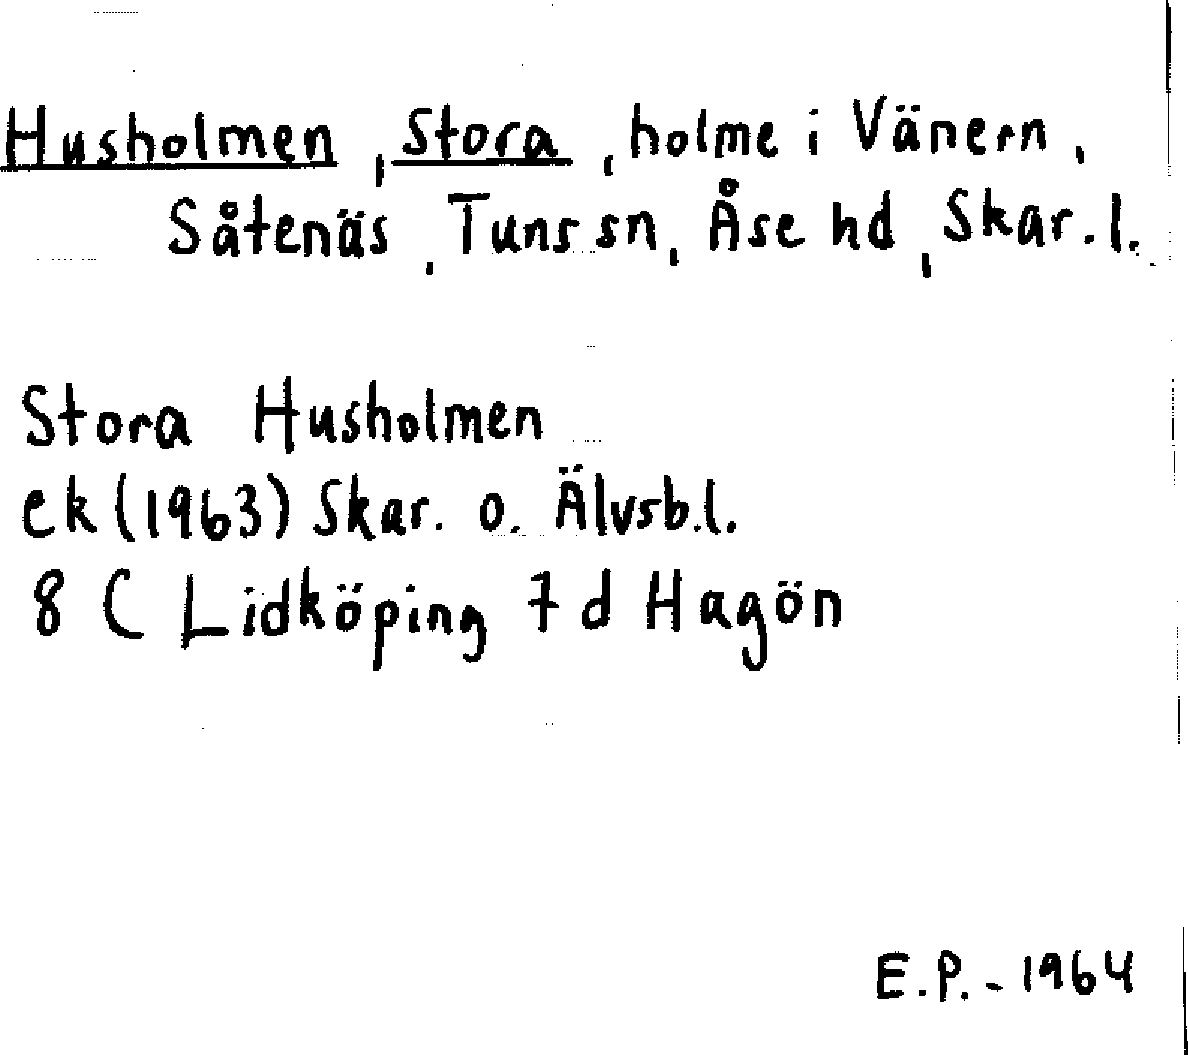 Husholmen, Stora, holme i Vänern,
Såtenäs, Tuns sn, Åse hd, Skar.l.
Stora Husholmen
ek (1963) Skar. o. Älvsb.l.
8 C Lidköping 7 d Hagön
E.P. - 1964